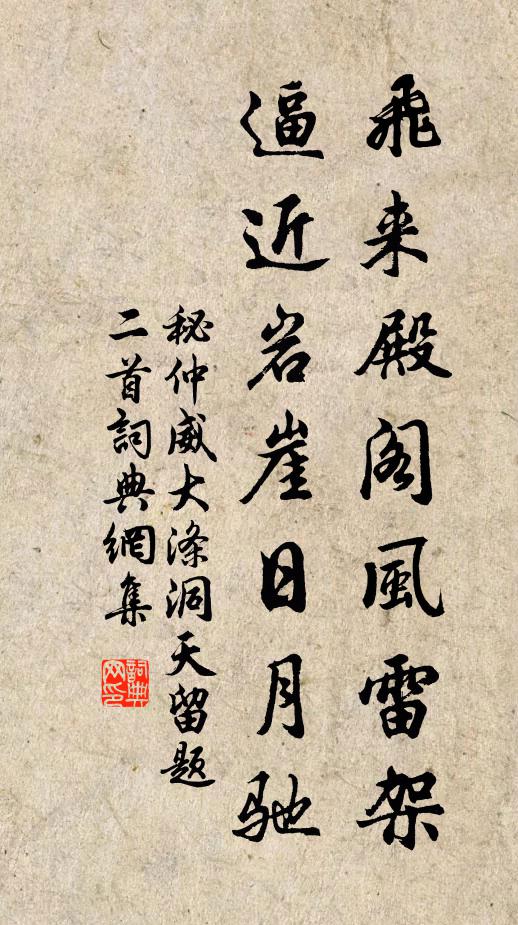 飛来殿阁風雷架
逼近岩崖日月馳
秘仲威大滌洞天留题
二首詞典網集
詞典网印